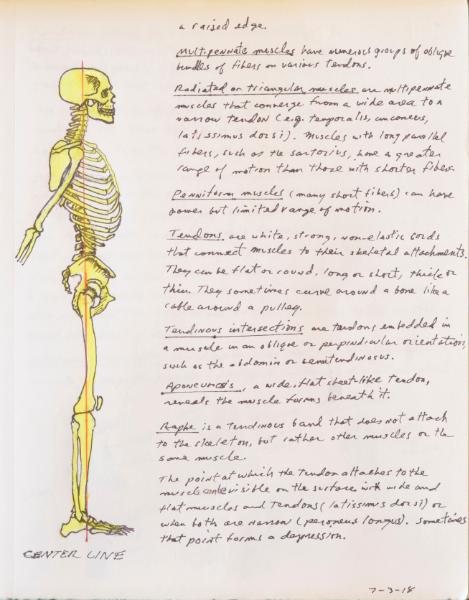 a raised edge.
Multipennate muscles have numerous groups of oblique
bundles of fibers on various tendons.
Radiated or triangular muscles are multipennate
muscles that converge from a wide area to a
narrow tendon (e.g. temporalis, anconeus,
latissimus dorsi). Muscles with long parallel
fibers, such as the sartorius, have a greater
range of motion than those with shorter fibers.
Penniform muscles (many short fibers) can have
power but limited range of motion.
Tendons are white, strong, non-elastic cords
that connect muscles to their skeletal attachments.
They can be flat or round, long or short, thick or
thin. They sometimes curve around a bone like a
cable around a pulley.
Tendinous intersections are tendons embedded in
a muscle in an oblique or perpendicular orientation,
such as the abdomin or semitendinosus.
Aponeurosis, a wide, flat sheet-like tendon,
reveals the muscle forms beneath it.
Raphe is a tendinous band that does not attach
to the skeleton, but rather other muscles or the
same muscle.
The point at which the tendon attaches to the
muscle visible on the surface with wide and
flat muscles and tendons (latissimus dorsi) or
when both are narrow (peroneus longus). Sometimes
that point forms a depression.
CENTER LINE
7-3-18